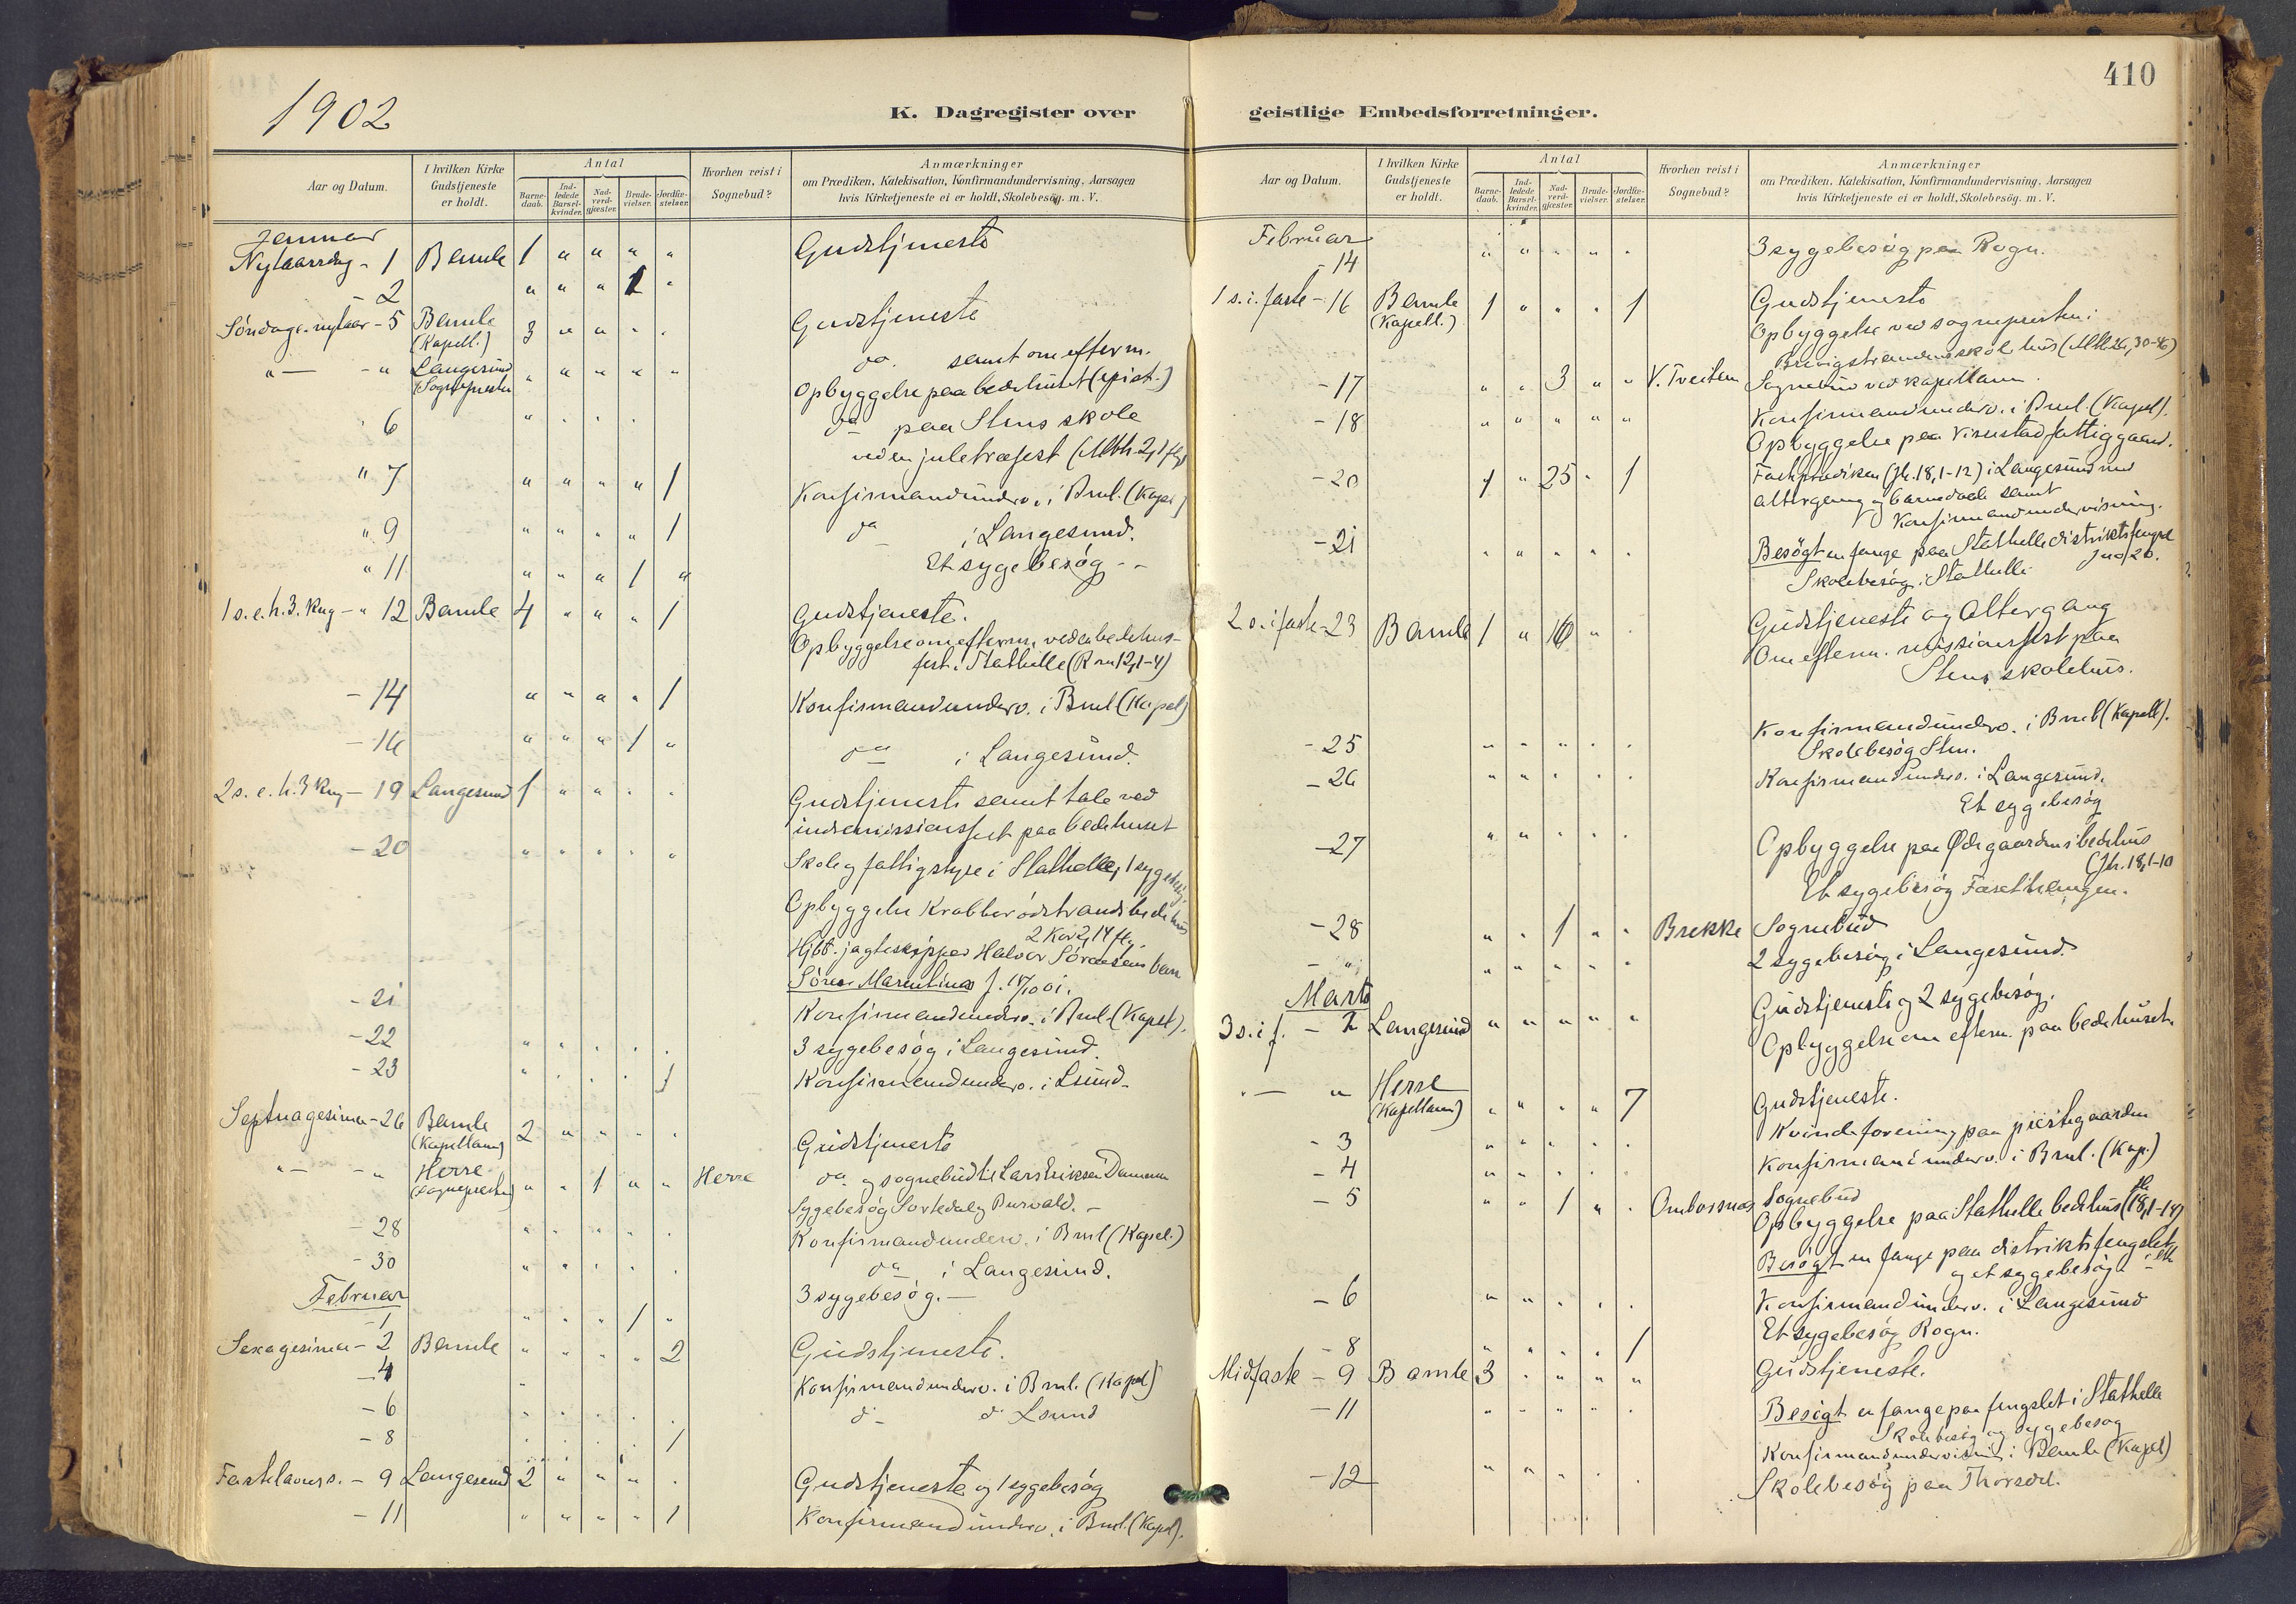 1902
K. Dagregister over
Aar og Datum.
I hvilken Kirke Gudstjeneste er holdt.
Antal
Barne-daab.
Ind-ledede Barsel-kvinder.
Nad-verd-gjæster.
Brude-vielser.
Jordfæ-stelser.
Hvorhen reist i Sognebud?
Anmærkninger
om Prædiken, Katekisation, Konfirmandundervisning, Aarsagen
hvis Kirketjeneste ei er holdt, Skolebesøg. m. V.
Januar
Nytaarsdag - 1 Bamle 1 " " " " Gudstjeneste
- 2 " " " 1 "
Søndag e. nytaar - 5 Bamle (Kapell.) 3 " " " " Gudstjeneste
" — - " Langesund (Sognepresten) " " " " " do. samt om efterm.
Opbyggelse paa bedehuset (epist.)
6 " " " " do paa Stens skole
ved en juletræfest (Mth. 2,1 flg)
" 7 " " " " 1 Konfirmandunderv. i Bml. (Kapel)
" 9 " " " " 1 do i Langesund.
" 11 " " " 1 " Et sygebesøg - -
1 s. e. h. 3. Kng - " 12 Bamle 4 " " " 1 Gudstjeneste.
Opbyggelse om efterm. ved en bedehus-
fest i Stathelle (Rm 12,1-4)
- 14 " " " " 1 Konfirmandunderv. i Bml (Kapel)
- 16 " " " 1 " do i Langesund.
2 s. e. h. 3 Kng - 19 Langesund 1 " " " " Gudstjeneste samt tale ved
indremissionsfest paa bedehuset
- 20 " " " " " Skole og fattigstyre i Stathelle, 1 sygebesøg.
Opbyggelse Krabberødstrands bedehus
2 Kor 2,14 flg.
Hjbt. jagteskipper Halvor Sørensens barn
Søren Marentinus f. 18/10 01.
- 21 Konfirmandunderv. i Bml. (Kapel).
- 22 " " " " " 3 sygebesøg i Langesund.
- 23 " " " " 1 Konfirmandunderv. i Lsund.
Septuagesima - 26 Bamle (Kapellanen) 2 " " " " Gudstjeneste
" — - " Herre (Sognepresten) " " 1 " " Herre do og sognebud til Lars Eriksen Dammen
Sygebesøg Sortedal og
- 28 " " " " " Konfirmandunderv. i Bml (Kapel.)
- 30 " " " " " do i Langesund.
Februar 3 sygebesøg. —
- 1 " " " 1 "
Sexagesima - 2 Bamle " " " " 2 Gudstjeneste.
- 4 " Konfirmandunderv. i Bml. (Kapel)
- 6 " " " " " do do Lsund
- 8 " " " " 1
Fastelavns s. - 9 Langesund 2 " " " " Gudstjeneste og 1 sygebesøg
- 11 " " " " 1 Konfirmandunderv. i Bml. (Kapel).
410
geistlige Embedsforretninger.
Aar og Datum.
I hvilken Kirke Gudstjeneste er holdt.
Antal
Barne-daab.
Ind-ledede Barsel-kvinder.
Nad-verd-gjæster.
Brude-vielser.
Jordfæ-stelser.
Hvorhen reist i Sognebud?
Anmærkninger
om Prædiken, Katekisation, Konfirmandundervisning, Aarsagen
hvis Kirketjeneste ei er holdt, Skolebesøg. m. V.
Februar
- 14 " " " " " 3 sygebesøg paa Rogn.
1 s. i. faste - 16 Bamle (Kapell.) 1 " " " 1 Gudstjeneste
Opbyggelse ved sognepresten i
skolehus (Mth 26,30-46)
- 17 " " 3 " " V. Tveiten Sognebud ved kapellanen.
- 18 " " " " " Konfirmandunderv. i Bml. (Kapel).
Opbyggelse paa Vinestad fattiggaard.
- 20 1 " 25 " 1 Fasteprædiken (Jh. 18,1-12) i Langesund med
altergang og barnedaab samt
Konfirmandundervisning.
- 21 " " " " " Besøgt en fange paa Stathelle distriktsfængsel
Skolebesøg i Stathelle
2 s. i faste - 23 Bamle 1 " 16 " " Gudstjeneste og Altergang
Om efterm. missionsfest paa
Stens skolehus.
- 25 " " " " " Konfirmandunderv. i Bmb (Kapell).
Skolebesøg Sten.
- 26 " " " " " Konfirmandunderv. i Langesund.
Et sygebesøg
- 27 " " " " " Opbyggelse paa Ødegaardens bedehus
(Jh. 18,1-10
Et sygebesøg
- 28 " " 1 " " Brekke Sognebud
- " " " " " " 2 sygebesøg i Langesund.
Marts
3 s. i f. - 2 Langesund " " " " " Gudstjeneste og 2 sygebesøg.
Opbyggelse om efterm. paa bedehuset.
" — " Herre (Kapellanen) " " " " 7 Gudstjeneste.
- 3 " " " " " Kvindeforening paa prestegaarden
- 4 " " " " " Konfirmandunderv. i Bml. (Kap.)
- 5 " " 1 " " Omborsnes Sognebud
Opbyggelse paa Stathelle bedehus (Jh 18,1-14)
Besøgt en fange paa distriktsfængslet
og et sygebesøg
- 6 " " " " " Konfirmandunderv. i Langesund
Et sygebesøg Rogn.
- 8 " " " " 1
Midfaste - 9 Bamle 3 " " " " Gudstjeneste.
- 11 " " " " " Besøgt en fange paa fængslet i Stathelle
Skolebesøg og sygebesøg
Konfirmandundervisning i Bamle (Kapel)
- 12 " " " " " Skolebesøg paa